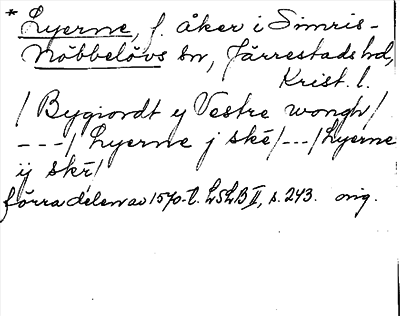 * Lyerne, f. åker i Simris-
Nöbbelövs sn, Järrestads hd,
Krist. l.
/ Bygiordt y Vestre wongh/
---/ Lyerne j ské/---/Lyerne
ÿ skr/
förra delen av 1570-t. LSLB II, s. 243. orig.